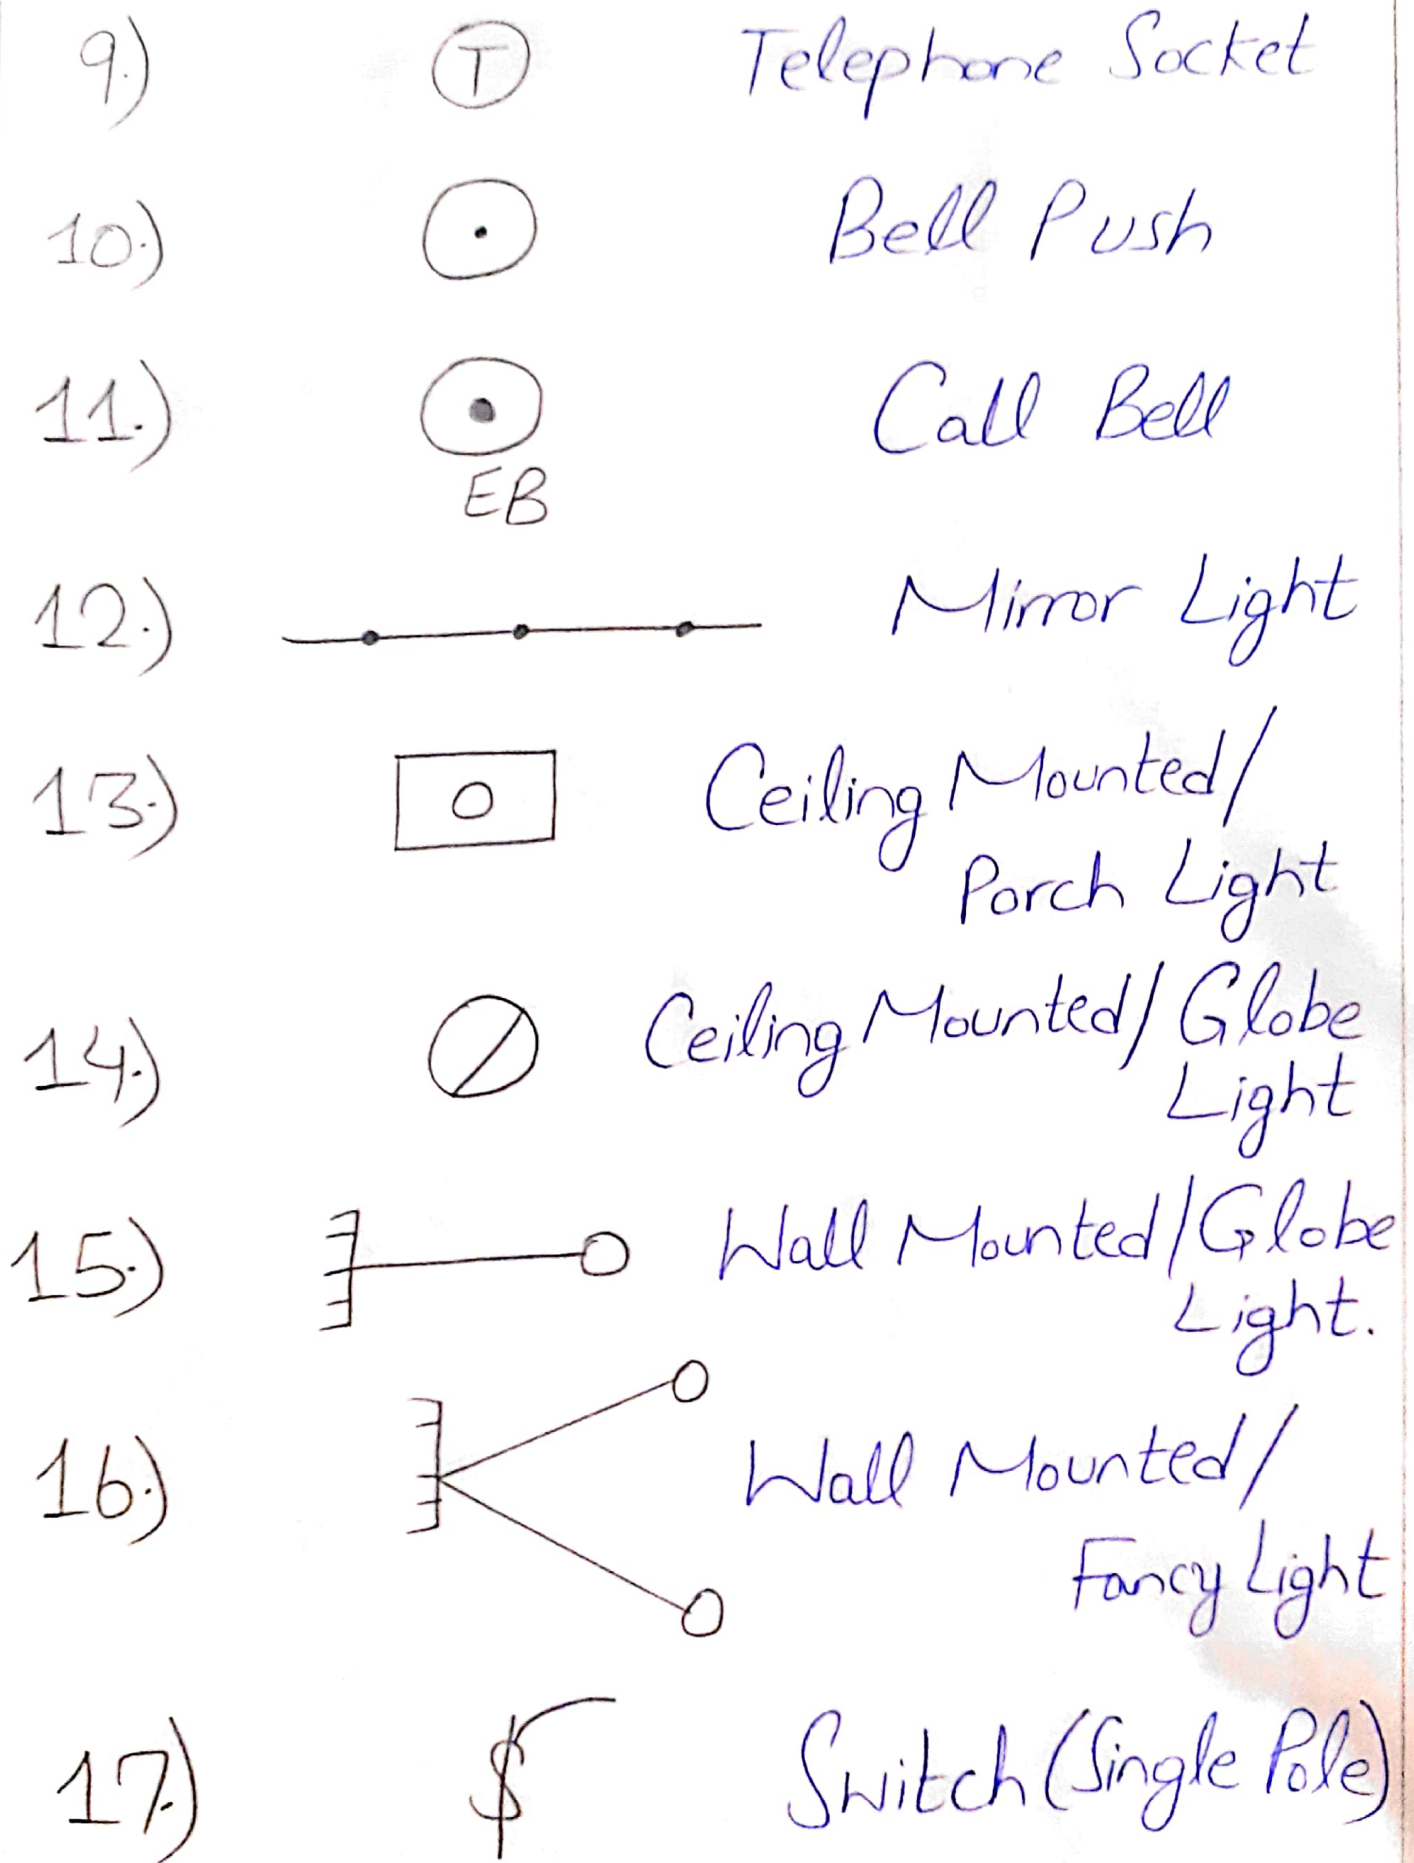 9.) T Telephone Socket
10.) Bell Push
11.) Call Bell
EB
12.) Mirror Light
13.) Ceiling Mounted/
Porch Light
14.) Ceiling Mounted/Globe
Light
15.) Wall Mounted/Globe
Light.
16.) Wall Mounted/
Fancy Light
17.) $ Switch (Single Pole)